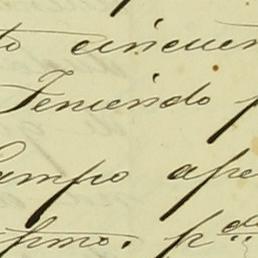 to cincuen
Teniendo p
ampo ape
pmo. pde